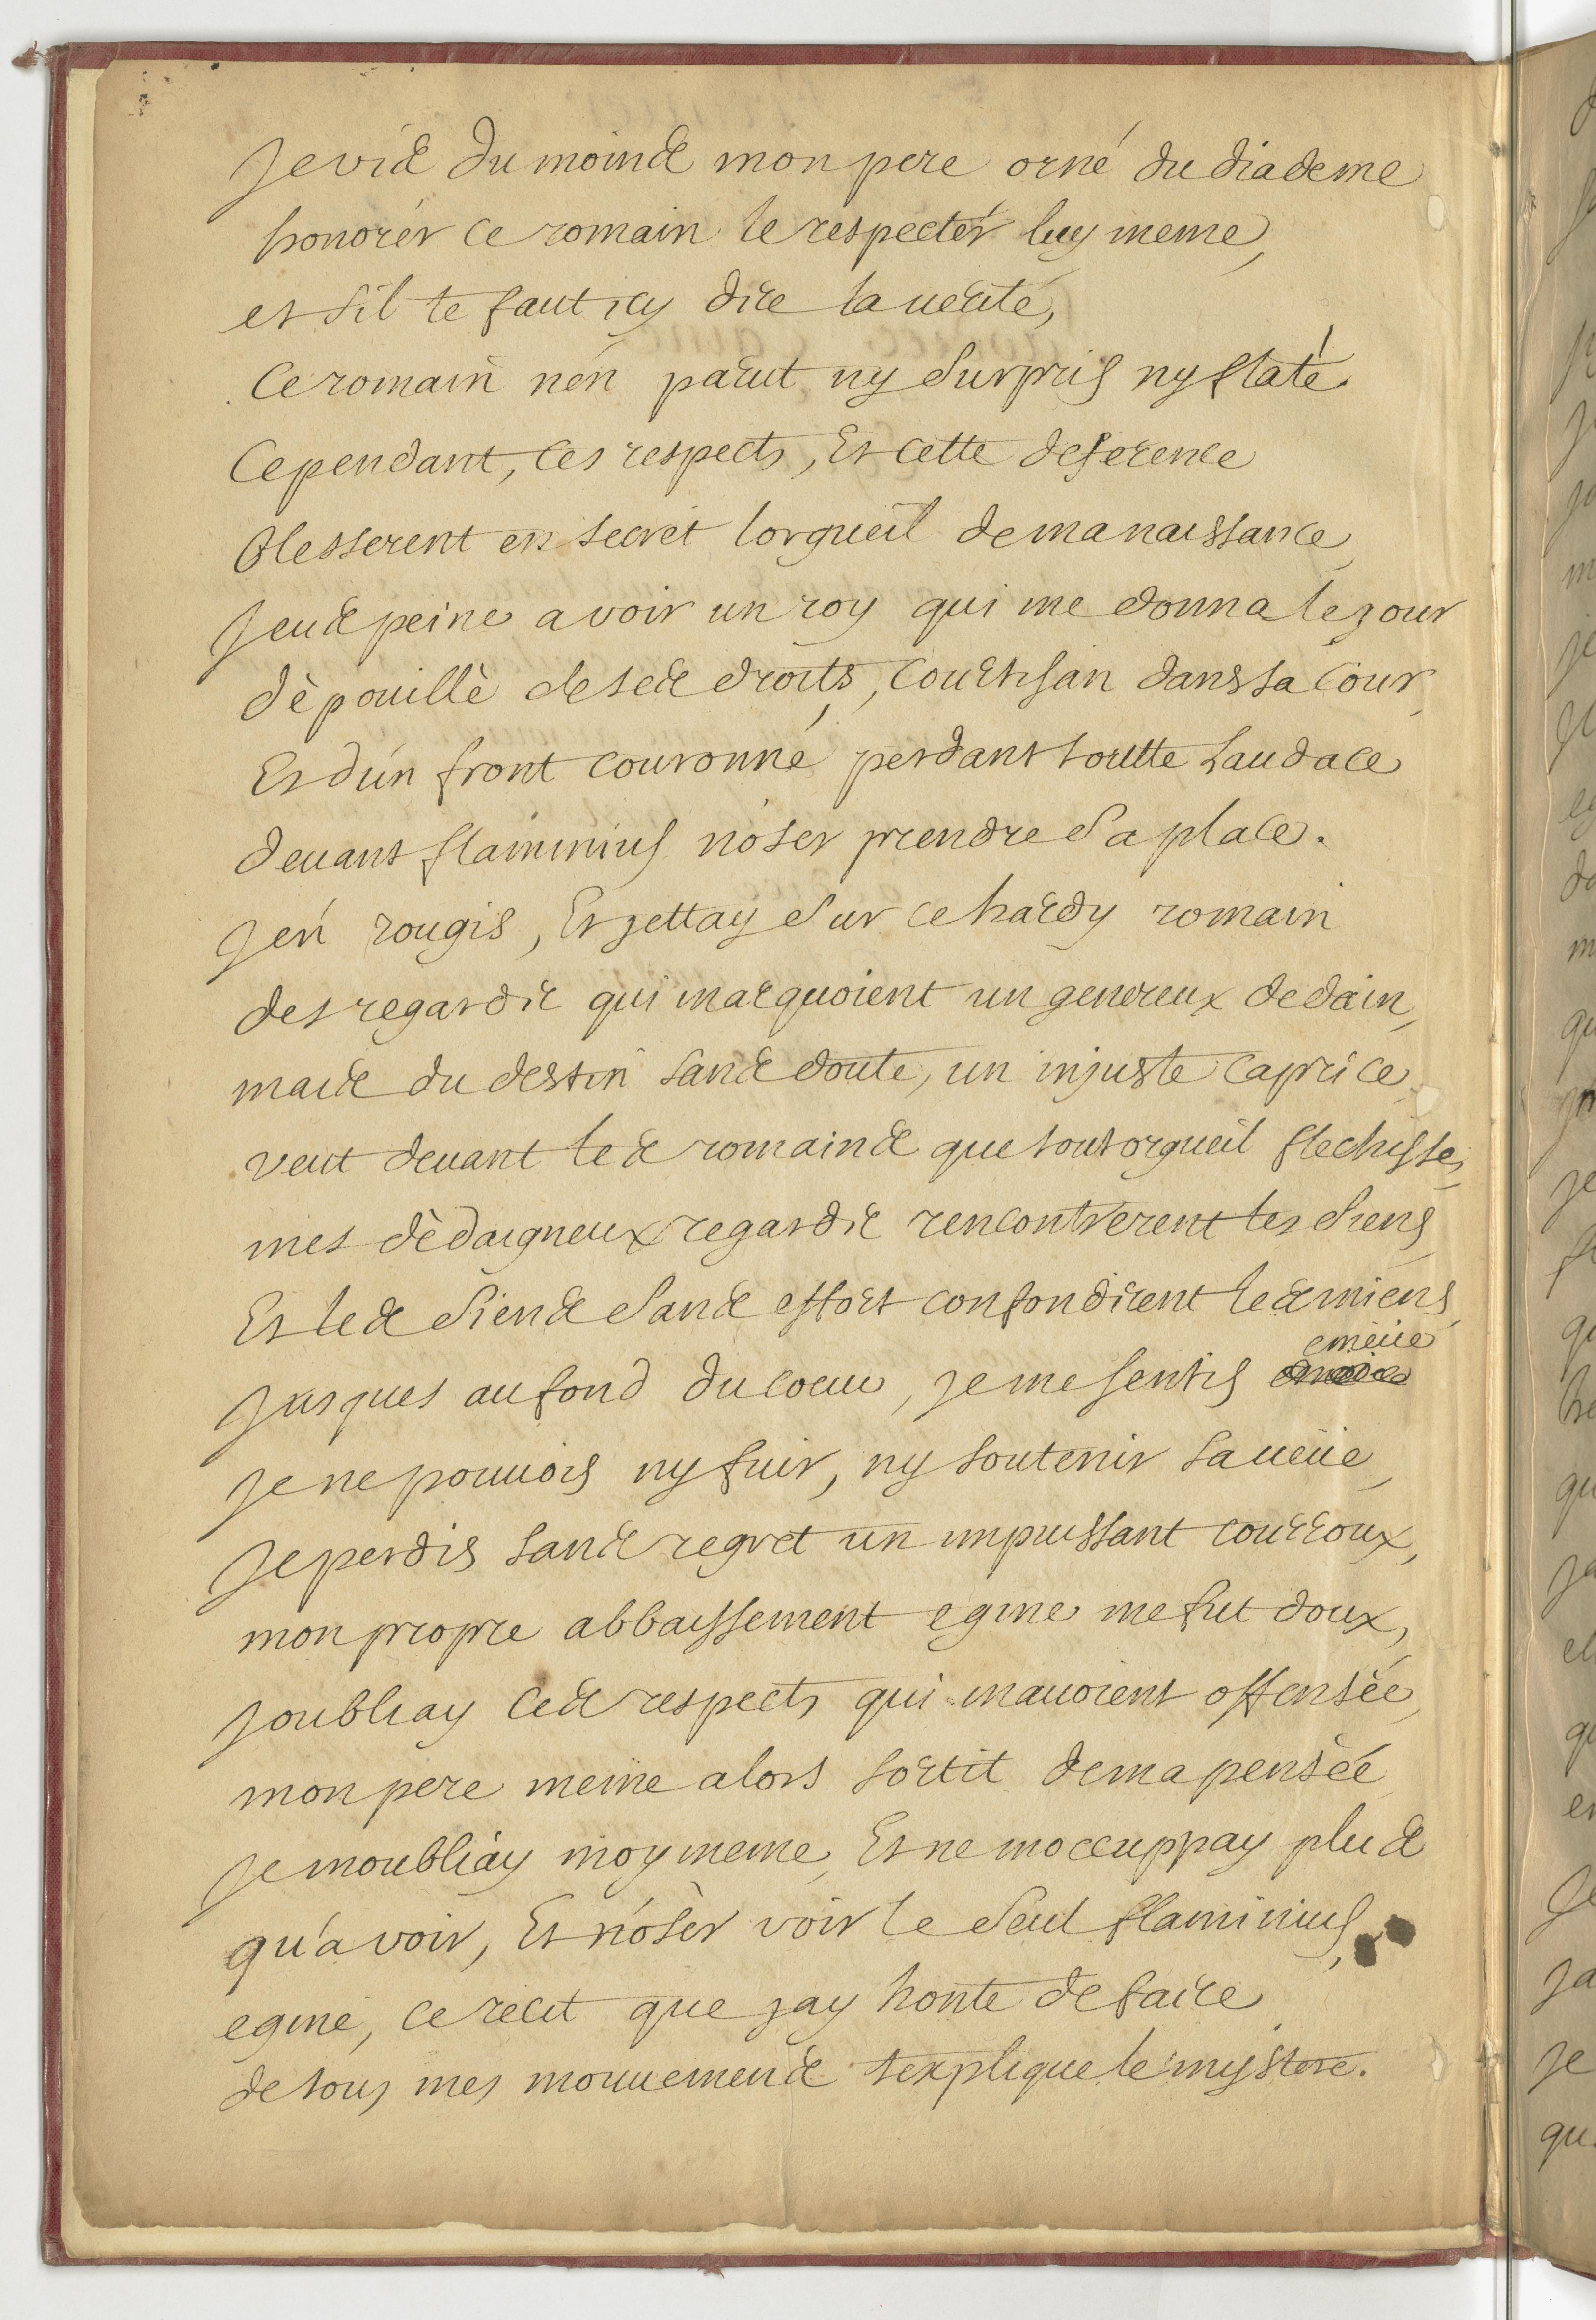 Je vis du moins mon pere orné du diademe
honorér ce romain le respectér luy meme,
et sil te faut icy dire la uerité,
Ce romain nén parut ny surpris ny flaté.
Cependant, ces respects, Et cette deference
blesserent en secret lorgueil de ma naissance,
Jeus peine a voir un roy qui me donna le jour
dèpouillè de ses droits, Courtisan dans sa Cour,
Et dún front couronné perdant toutte laudace
deuant flaminius nóser prendre sa place.
Jén rougis, Et jettay sur ce hardy romain
des regards qui marquoient un genereux dedain,
mais du destin sans doute, un injuste caprice,
veut deuant les romains que tout orgueil flechisse,
mes dèdaigneux regards rencontrerent les siens,
Et les siens sans effort confondirent les miens,
Jusques au fond du coeur, je me sentis emeüe
Je ne pouuois ny fuir, ny soutenir sa ueüe,
Je perdis sans regret un impuissant courroux,
mon propre abbaissement egine me fut doux,
Joubliay ces respects qui mauoient offensée,
mon pere meme alors sortit de ma pensèé,
Je moubliay moy meme, Et ne moccuppay plus
qu'a voir, Et nósèr voir le seul flaminius,
egine, ce recit que jay honte de faire
de tous mes mouuemens texplique le mystere.